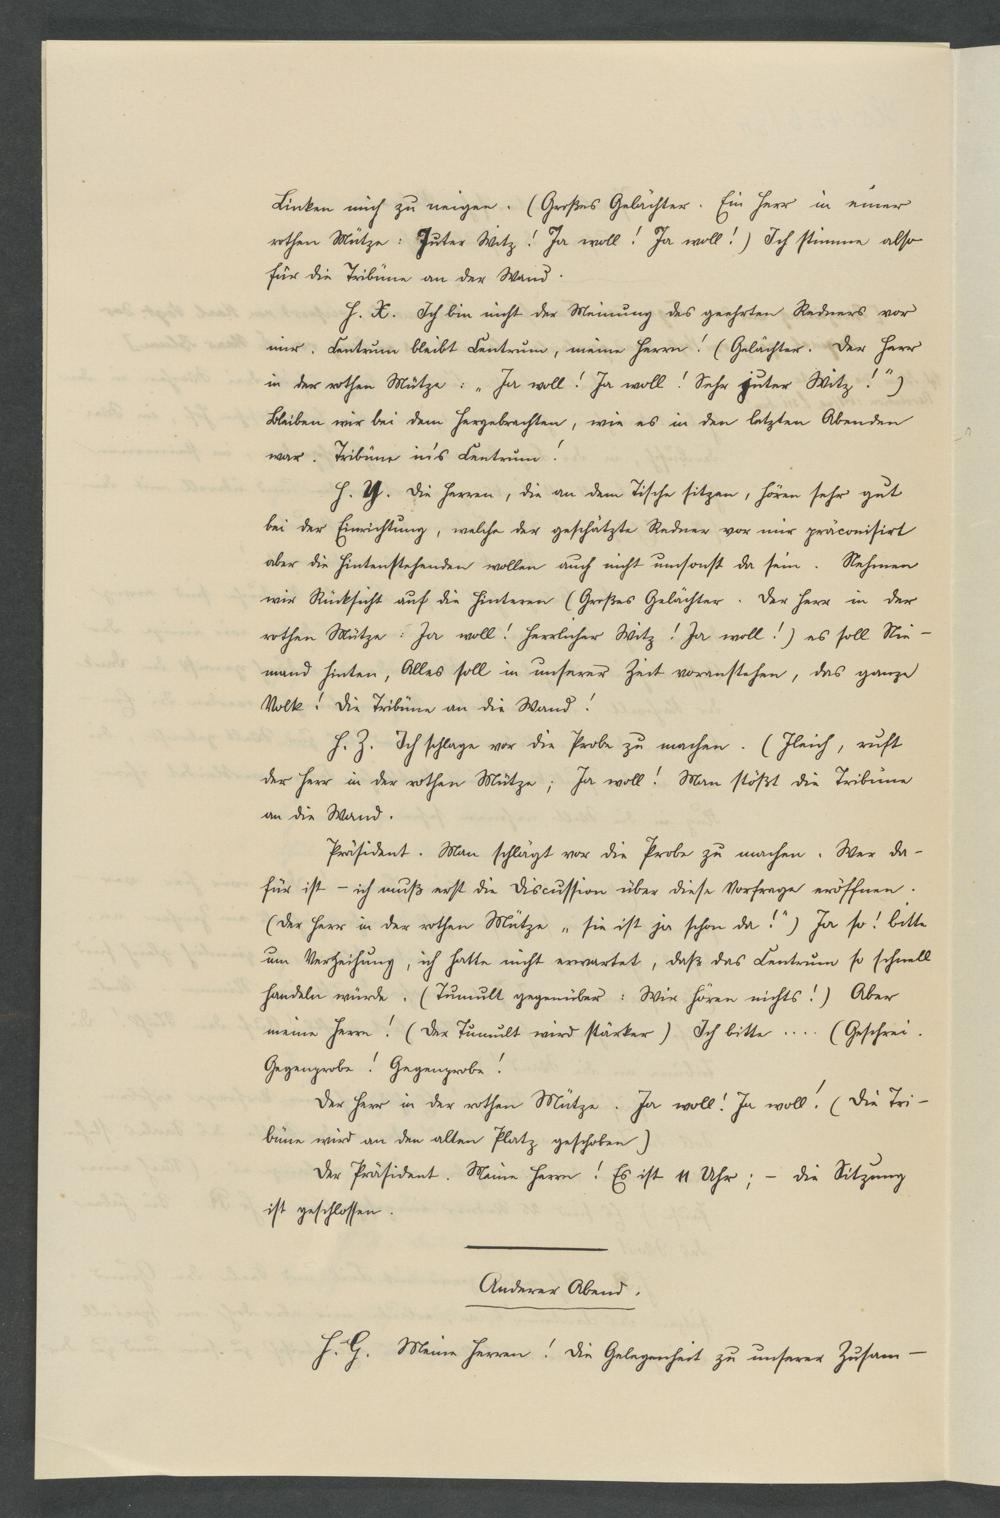 Linken mich zu neigen. (Großes Gelächter. Ein Herr in einer
rothen Mütze: Juter Witz! Ja woll! Ja woll!) Ich stimme also
für die Tribüne an der Wand.
H. X. Ich bin nicht der Meinung des geehrten Redners vor
mir. Centrum bleibt Centrum, meine Herrn! (Gelächter. Der Herr
in der rothen Mütze: „Ja woll! Ja woll! Sehr juter Witz!")
Bleiben wir bei dem Hergebrachten, wie es in den letzten Abenden
war. Tribüne in's Centrum!
H. Y. Die Herren, die an dem Tische sitzen, hören sehr gut
bei der Einrichtung, welche der geschätzte Redner vor mir präconisirt
aber die Hintenstehenden wollen auch nicht umsonst da sein. Nehmen
wir Rücksicht auf die Hinteren (Großes Gelächter. Der Herr in der
rothen Mütze: Ja woll! Herrlicher Witz! Ja woll!) es soll Nie-
mand hinten, Alles soll in unserer Zeit voranstehen, das ganze
Volk! Die Tribüne an die Wand!
H. Z. Ich schlage vor die Probe zu machen. (Jleich, ruft
der Herr in der rothen Mütze; Ja woll! Man stößt die Tribüne
an die Wand.
Präsident. Man schlägt vor die Probe zu machen. Wer da-
für ist - ich muß erst die Discussion über diese Vorfrage eröffnen.
(Der Herr in der rothen Mütze „sie ist ja schon da!") Ja so! bitte
um Verzeihung, ich hatte nicht erwartet, daß das Centrum so schnell
handeln würde. (Tumult gegenüber: Wir hören nichts!) Aber
meine Herrn! (Der Tumult wird stärker) Ich bitte .... (Geschrei.
Gegenprobe! Gegenprobe!
Der Herr in der rothen Mütze. Ja woll! Ja woll! (Die Tri-
büne wird an den alten Platz geschoben)
Der Präsident. Meine Herrn! Es ist 11 Uhr; - die Sitzung
ist geschlossen.
Anderer Abend.
H. G. Meine Herren! Die Gelegenheit zu unserer Zusam-